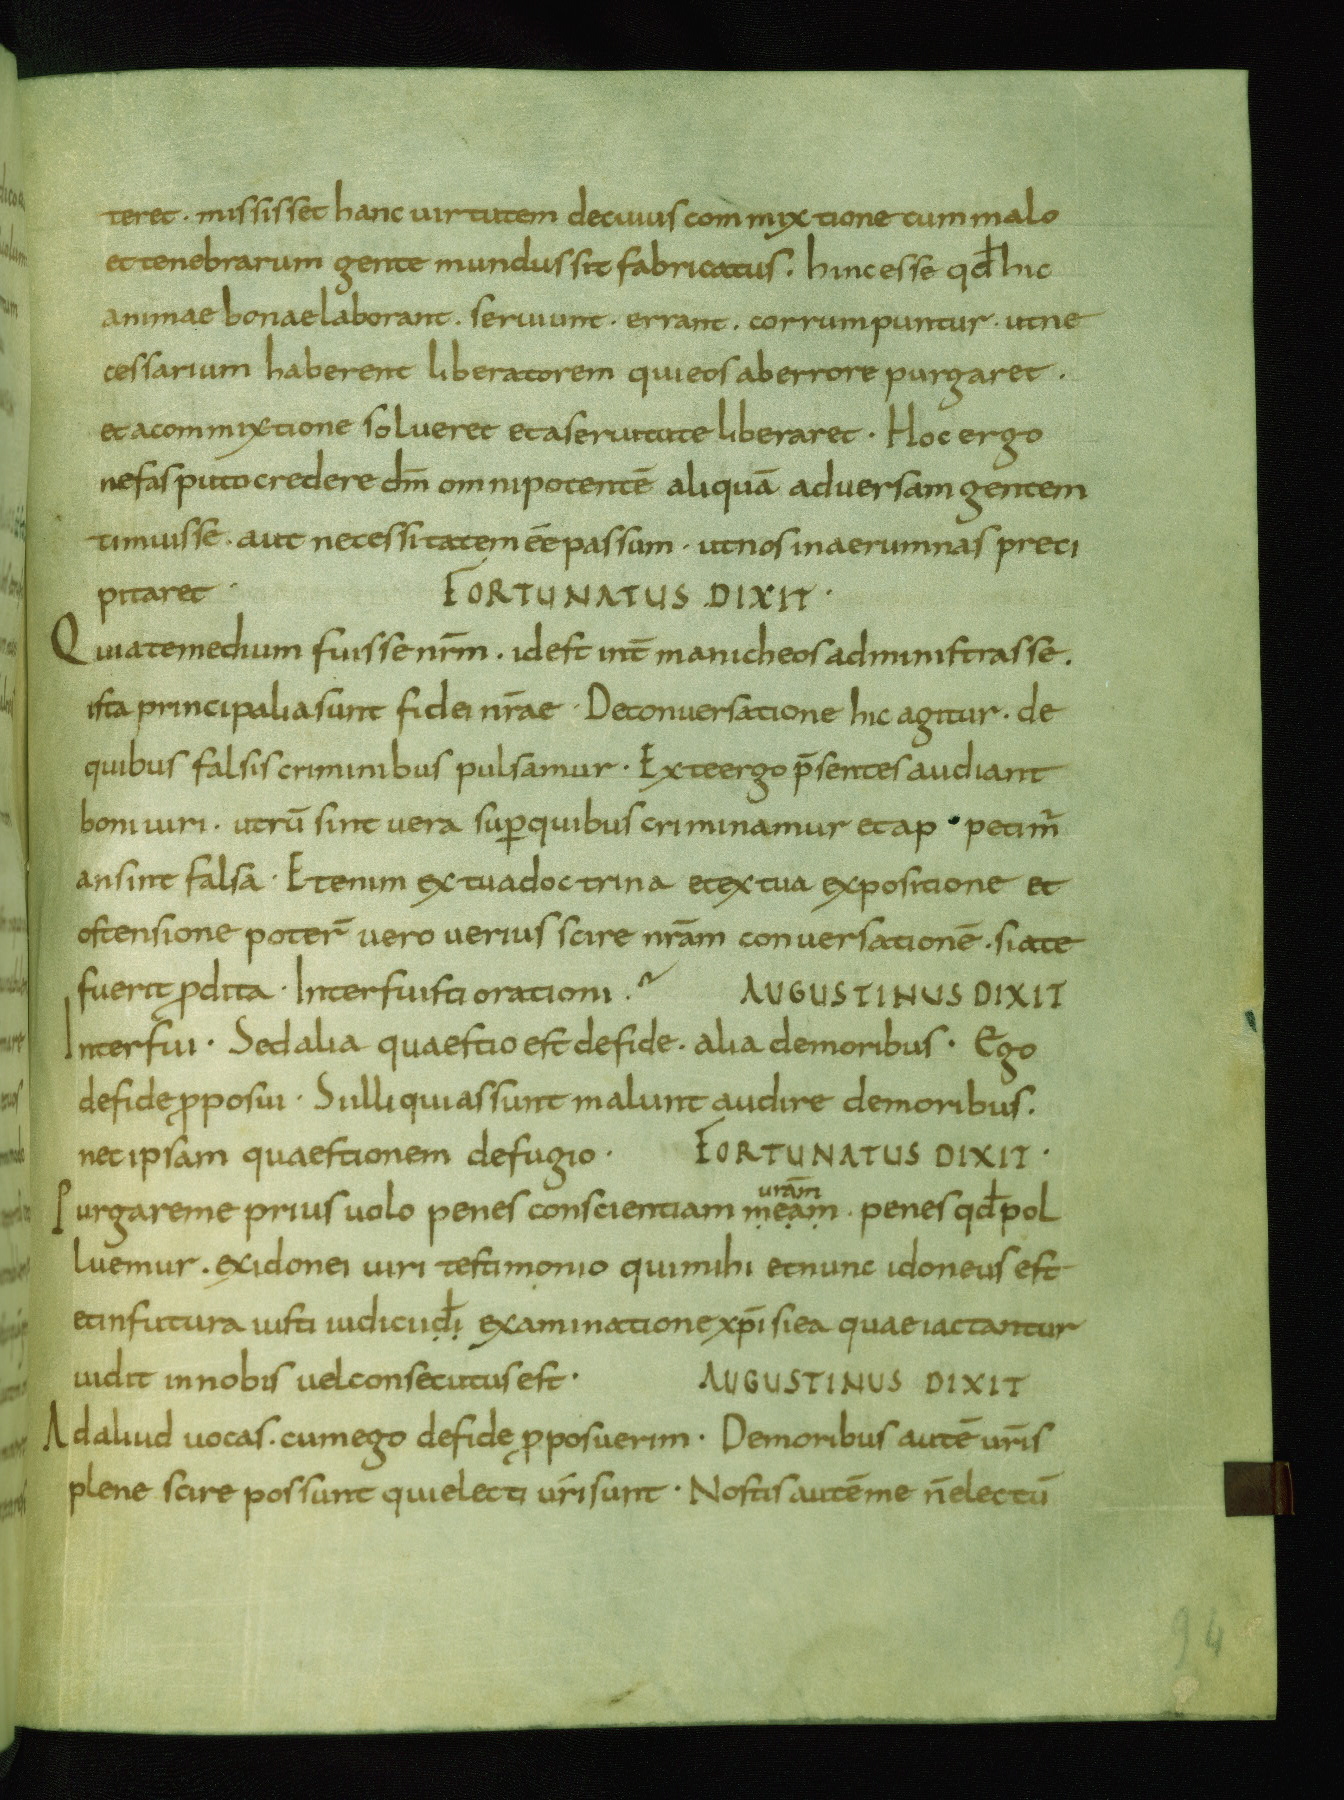 teret · mississet hanc uirtutem decuius commixtione cum malo
et tenebrarum gente mundus sit fabricatus. hinc esse qđ hic
animae bonae laborant · seruiunt · errant · corrumpuntur · ut ne
cessarium haberent liberatorem qui eos ab errore purgaret ·
et a commixtione solueret et a seruitute liberaret · Hoc ergo
nefas puto credere dm̄ omnipotentē aliquā aduersam gentem
timuisse · aut necessitatem ēe passum · ut nos in aerumnas preci
pitaret · FORTUNATUS DIXIT ·
Quia te medium fuisse nr̄m · id est int̄ manicheos administrasse.
ista principalia sunt fidei nr̄ae · De conuersatione hic agitur · de
quibus falsis criminibus pulsamur · Ex te ergo p̄sentes audiant
boni uiri · utrū sint uera sup̱ quibus criminamur et ap · petim̄
an sint falsa · Etenim ex tua doctrina et ex tua expositione et
ostensione poter̄ uero uerius scire nr̄am conuersationē · si a te
fuerit ꝓdita · Interfuisti orationi · AUGUSTINUS DIXIT
Interfui · Sed alia quaestio est de fide · alia de moribus · Ego
de fide ꝓposui · Si illi qui assunt malunt audire de moribus ·
nec ipsam quaestionem defugio · FORTUNATUS DIXIT ·
Purgare me prius uolo penes conscientiam ṃẹạṃ urām · penes qđ pol
luemur · ex idonei uiri testimonio qui mihi et nunc idoneus est
et in futura iusti iudicii đi examinatione xp̄i si ea quae iactantur
uidit in nobis uel consecutus est · AUGUSTINUS DIXIT
Ad aliud uocas · cum ego de fide ꝓposuerim · De moribus autē ur̄is
plene scire possunt qui electi ur̄i sunt · Nostis autē me n̄ electū
94